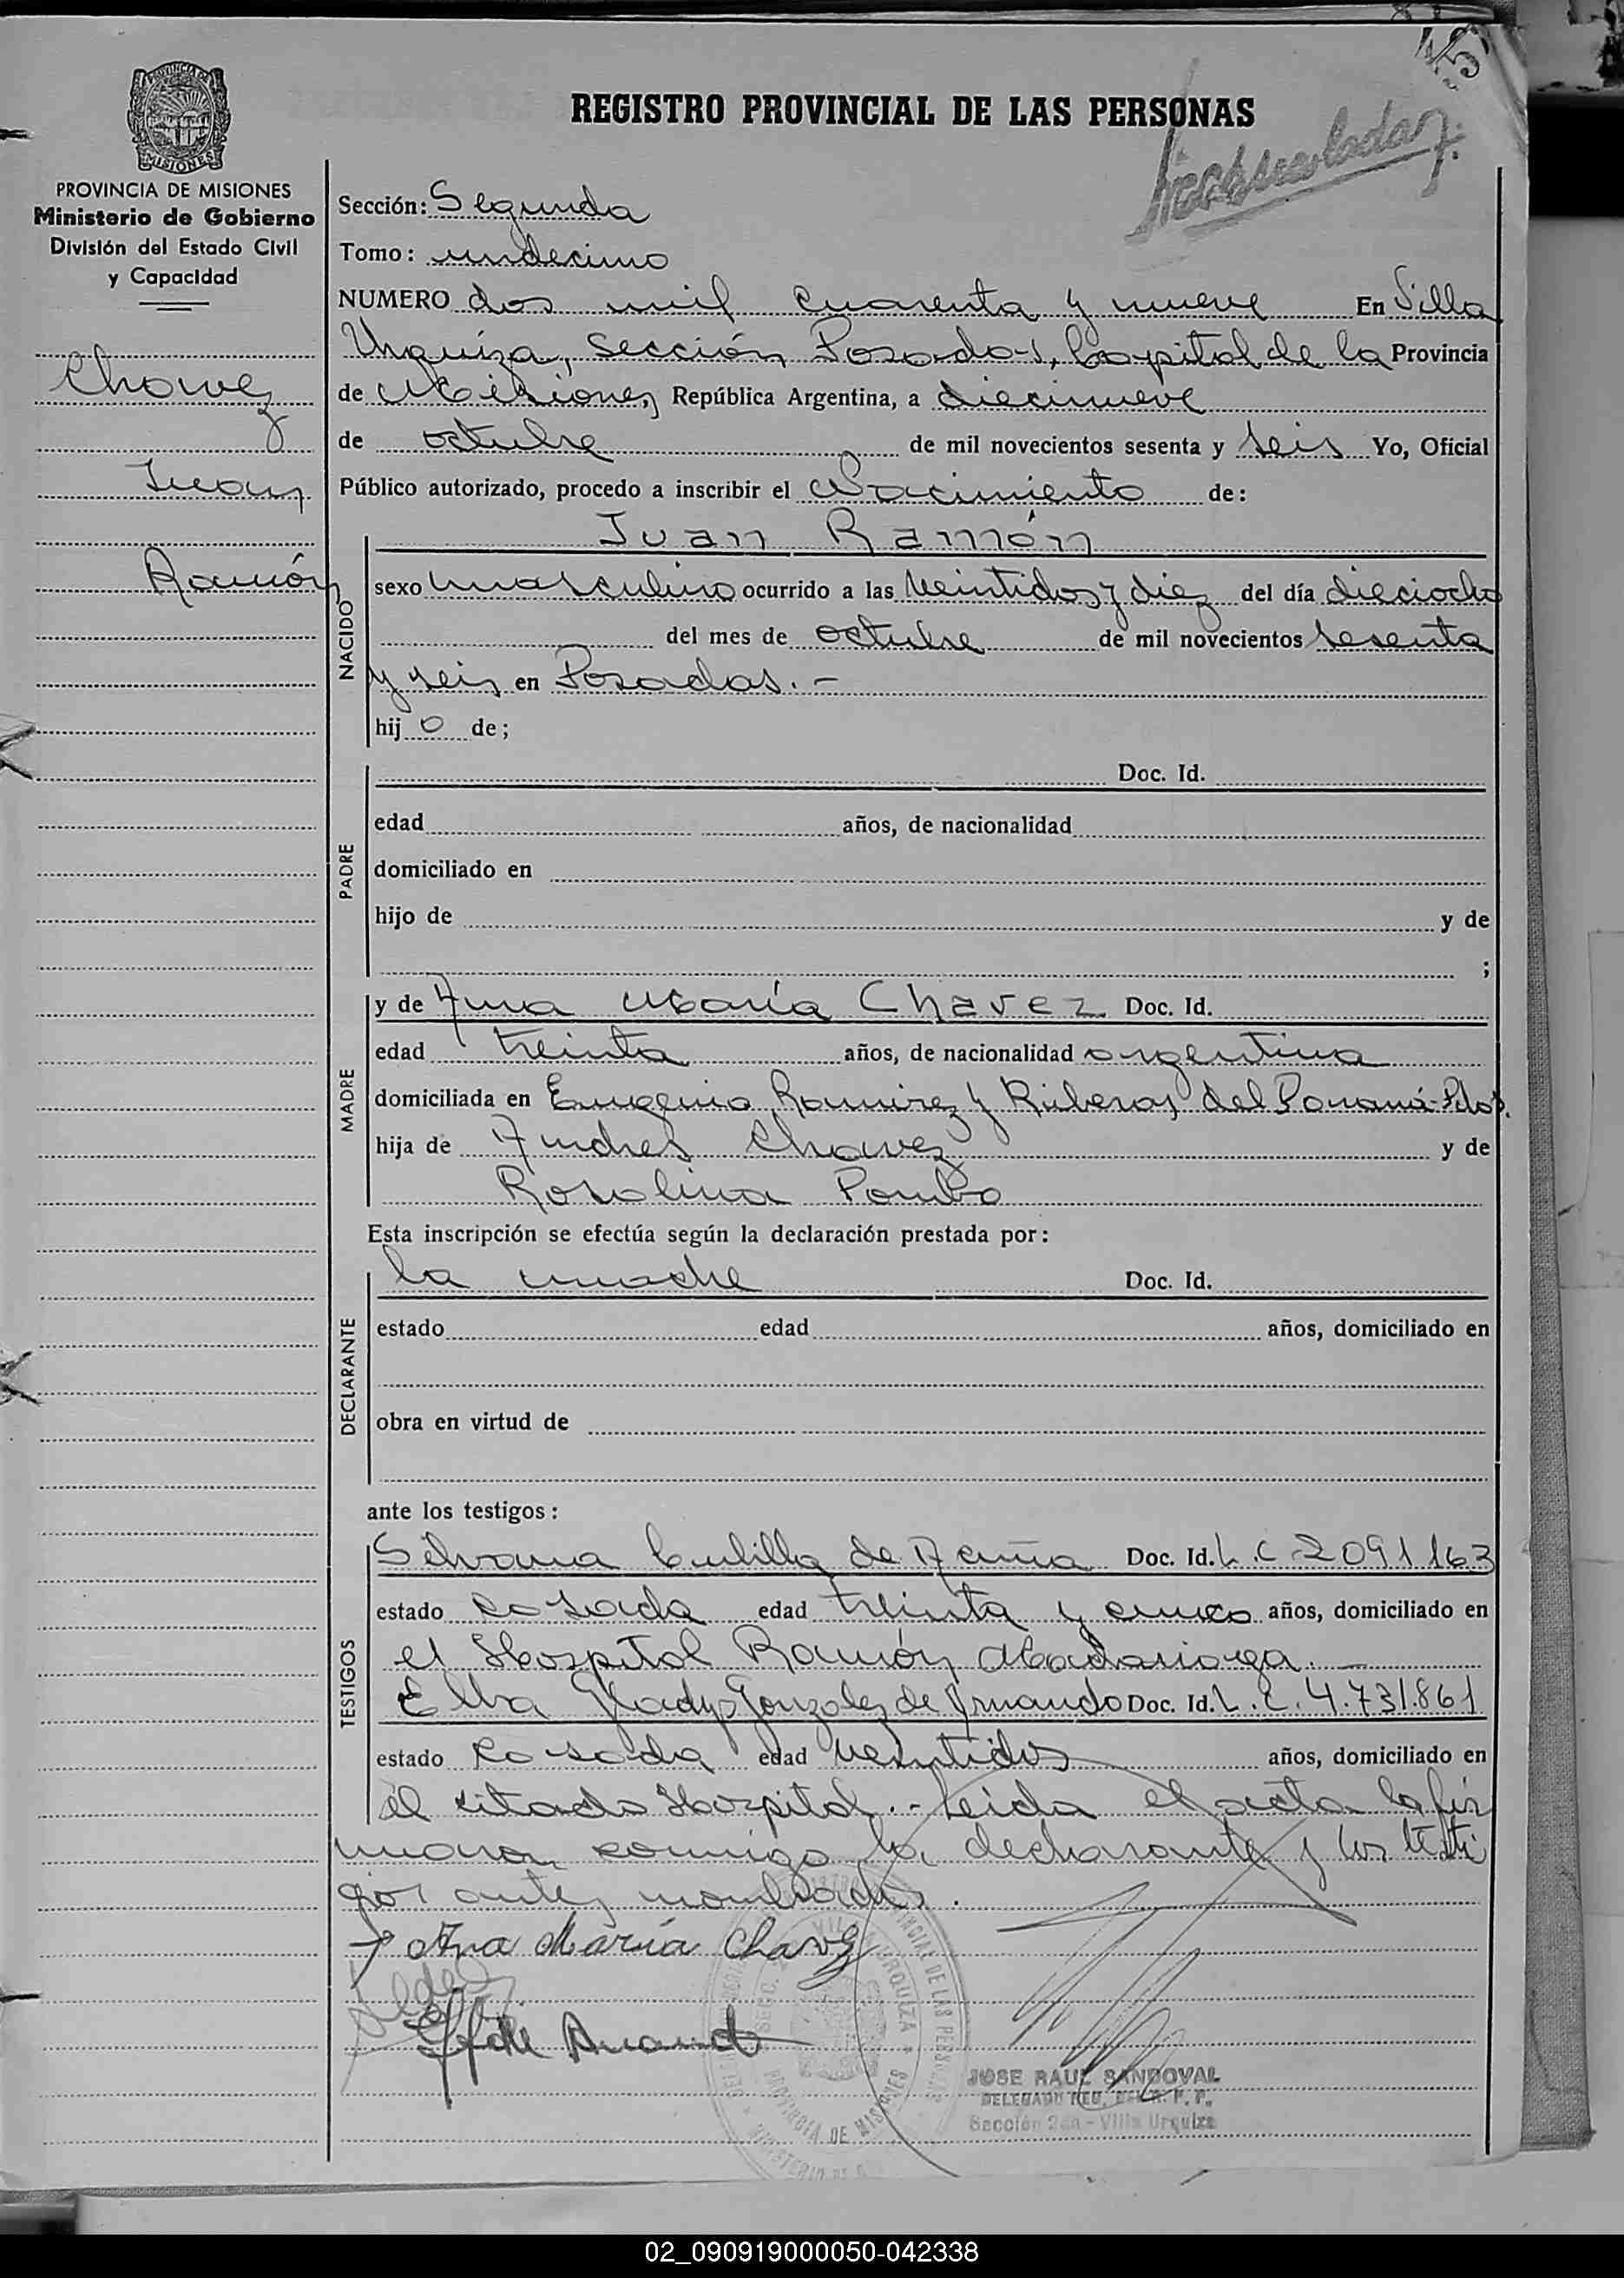 REGISTRO PROVINCIAL DE LAS PERSONAS
PROVINCIA DE MISIONES
Ministerio de Gobierno
División del Estado Civil
y Capacidad
Chavez
Juan
Ramón
Sección: Segunda
Tomo: undecimo
NUMERO dos mil cuarenta y nueve En Villa
Urquiza, Sección Posadas, Capital de la Provincia
de Misiones República Argentina, a diecinueve
de octubre de mil novecientos sesenta y seis Yo, Oficial
Público autorizado, procedo a inscribir el Nacimiento de:
NACIDO
Juan Ramón
sexo masculino ocurrido a las veintidos y diez del día dieciocho
del mes de octubre de mil novecientos sesenta
y seis en Posadas.-
hij o de;
PADRE
Doc. Id.
edad años, de nacionalidad
domiciliado en
hijo de y de
;
MADRE
y de Ana María Chavez Doc. Id.
edad treinta años, de nacionalidad argentina
domiciliada en Eugenio Ramirez y Riberas del Paraná-Pdas.
hija de Andres Chavez y de
Rosalina
Esta inscripción se efectúa según la declaración prestada por:
DECLARANTE
la madre Doc. Id.
estado edad años, domiciliado en
obra en virtud de
ante los testigos:
TESTIGOS
Silvana de Acuña Doc. Id. L.C 2091163
estado casada edad treinta y cinco años, domiciliado en
el Hospital Ramón Madariaga.-
Elba Gladys Gonzalez de Doc. Id. L.C. 4.731.861
estado casada edad veintidos años, domiciliado en
el citado Hospital.- Leida el acta la fir
maron conmigo la declarante y los testi
gos antes nombrados.
Ana María Chavez
JOSE RAUL SANDOVAL
Sección 2da - Villa Urquiza
02_090919000050-042338